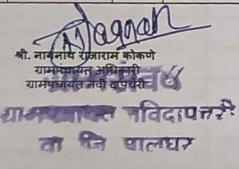 श्री. नागनाथ राजाराम कोकणे
ग्रामपंचायत अधिकारी
ग्रामपंचायत नवी दापचरी
ग्रामपंचायत नविदापचरी
ता जि पालघर